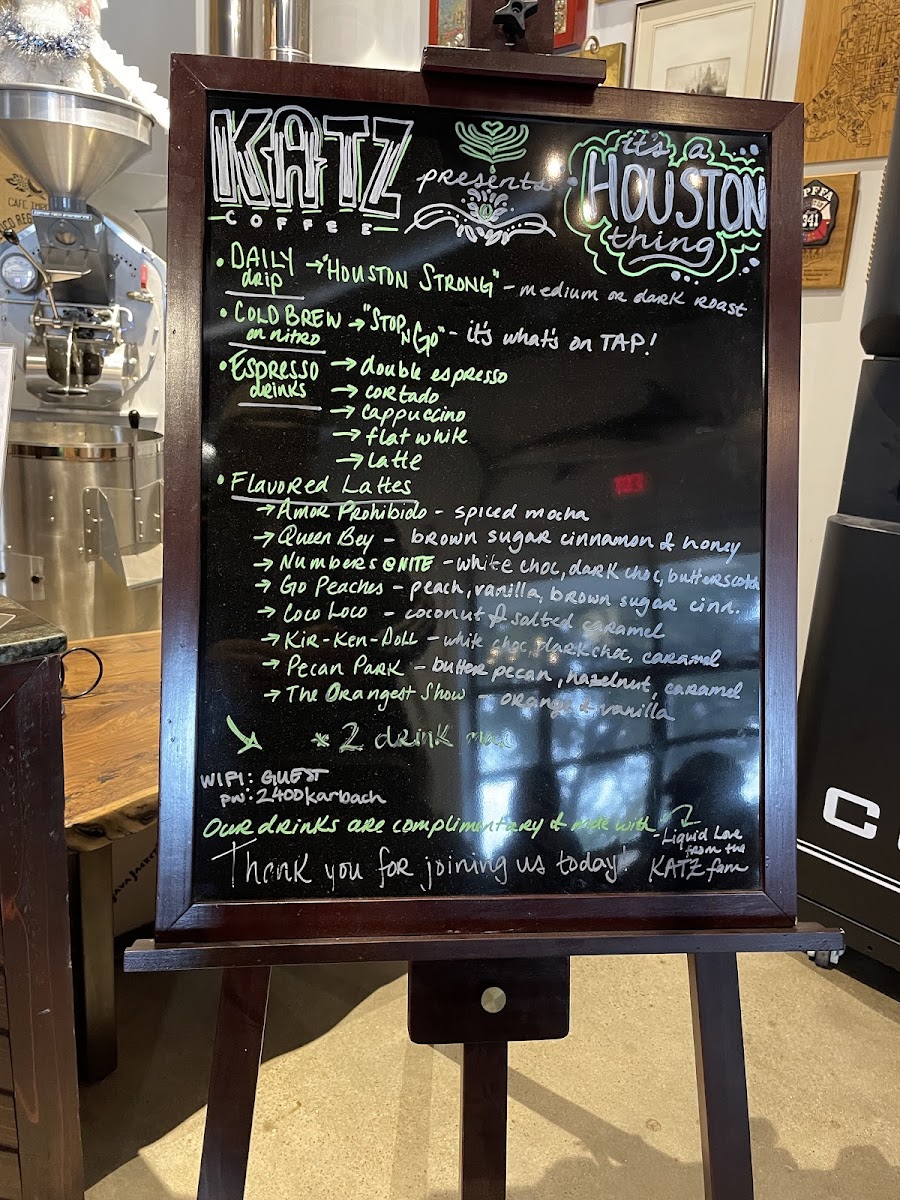 KATZ
COFFEE
presents
it's a
HOUSTON
thing
• DAILY drip → "HOUSTON STRONG" - medium or dark roast
• COLD BREW on nitro → "STOP N GO" - it's what's on TAP!
• Espresso drinks → double espresso
→ cortado
→ cappuccino
→ flat white
→ latte
• Flavored Lattes
→ Amor Prohibido - spiced mocha
→ Queen Bey - brown sugar cinnamon & honey
→ Numbers @ NITE - white choc, dark choc, butterscotch
→ Go Peaches - peach, vanilla, brown sugar cinn.
→ Coco Loco - coconut & salted caramel
→ Kir-Ken-Doll - white choc, dark choc, caramel
→ Pecan Park - butter pecan, hazelnut, caramel
→ The Orangest Show - orange & vanilla
* 2 drink max
WIFI: GUEST
pw: 2400Karbach
Our drinks are complimentary & made with
Liquid Love
from the
KATZ fam
Thank you for joining us today!
PFFA
341
JAVA JACKET
C